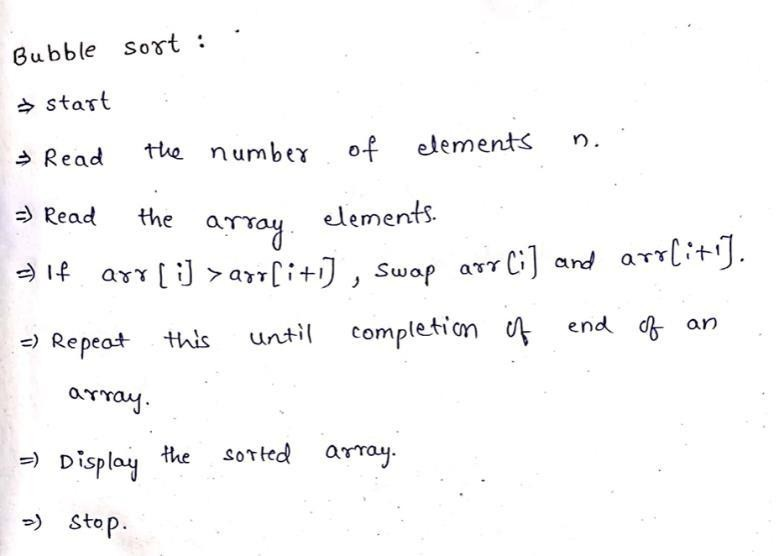 Bubble sort :
⇒ start
⇒ Read the number of elements n.
⇒ Read the array elements.
⇒ If arr[i] > arr[i+1], swap arr[i] and arr[i+1].
⇒ Repeat this until completion of end of an
array.
⇒ Display the sorted array.
⇒ Stop.